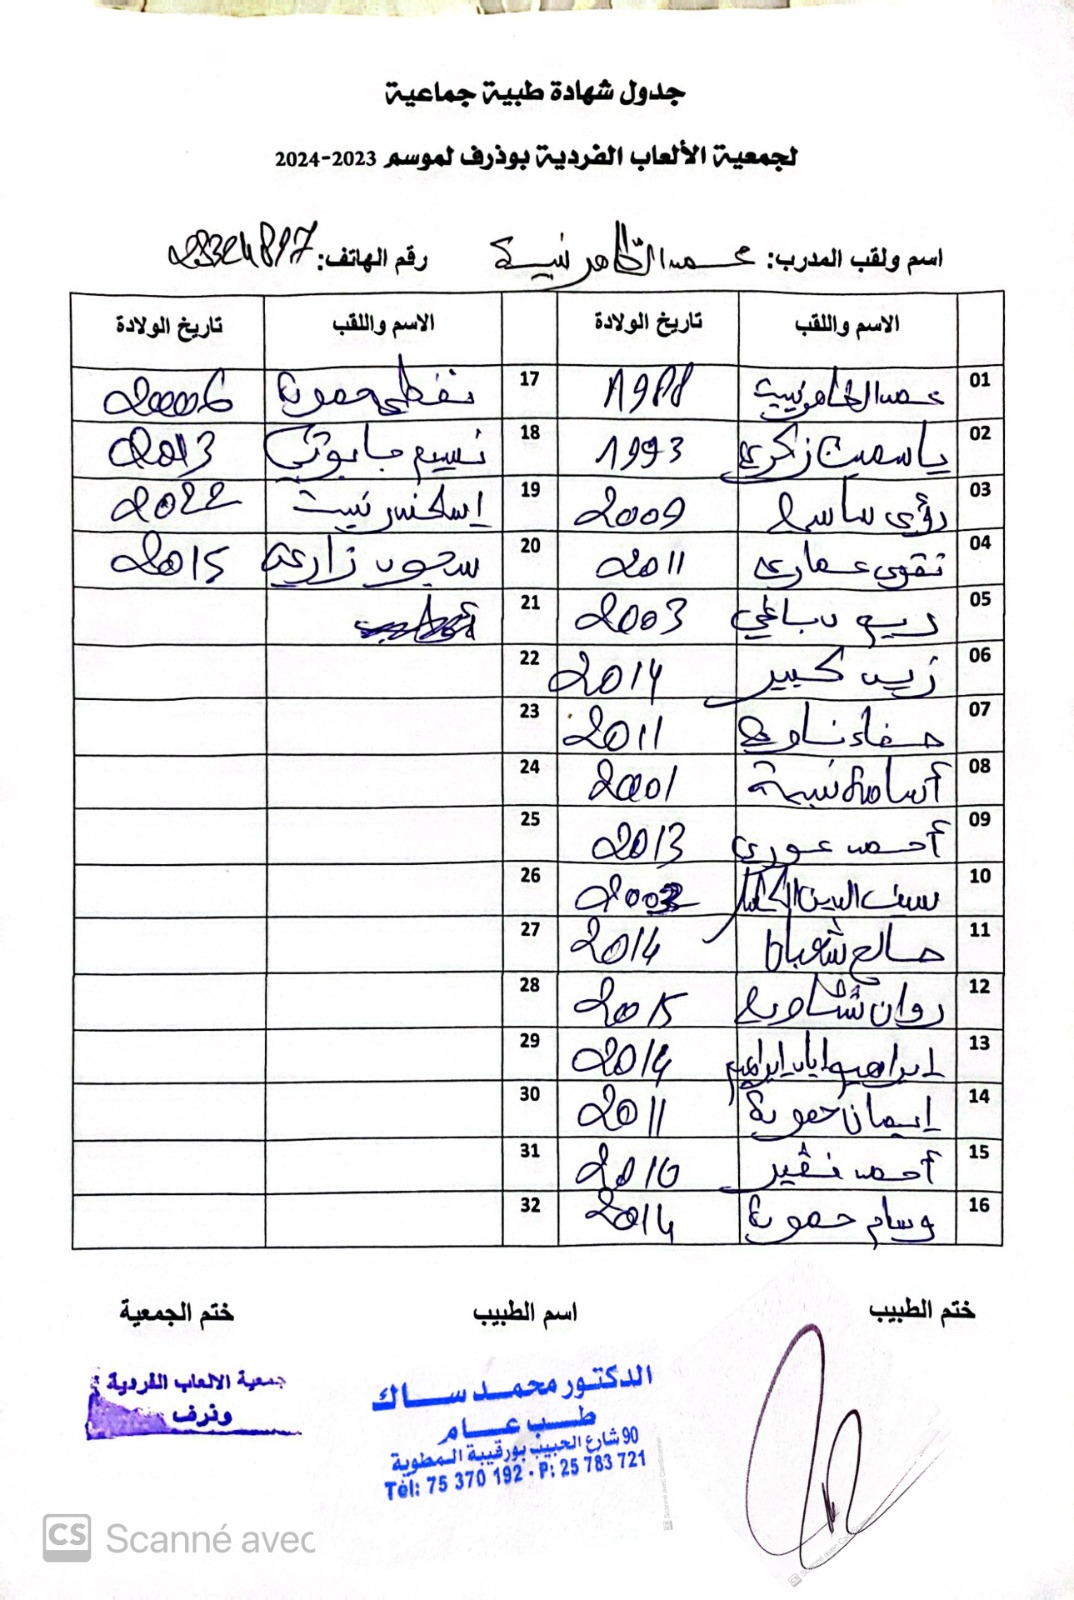 جدول شهادة طبية جماعية
لجمعية الألعاب الفردية بوذرف لموسم 2023-2024
اسم ولقب المدرب: محمد الطاهر نبية رقم الهاتف: 23324897
الاسم واللقب تاريخ الولادة الاسم واللقب تاريخ الولادة
01 محمد الطاهر نبية 1988 17 حمودة 2006
02 ياسمين زكري 1993 18 نسيم 2013
03 رؤى ساسي 2009 19 2022
04 تقوى عماري 2011 20 زاري 2015
05 2003 21
06 كبير 2014 22
07 صفاء ناوي 2011 23
08 أسامة نبية 2001 24
09 أحمد عوري 2013 25
10 سيف الدين 26
11 صالح شعبان 2014 27
12 روان شاوي 2015 28
13 ابراهيم 2014 29
14 إيمان حمودة 2011 30
15 أحمد نقير 2010 31
16 وسام حمودة 2014 32
ختم الطبيب اسم الطبيب ختم الجمعية
جمعية الالعاب الفردية
وذرف
الدكتور محمد ساك
طب عام
90 شارع الحبيب بورقيبة المطوية
Tél: 75 370 192 - P: 25 783 721
CS Scanné avec